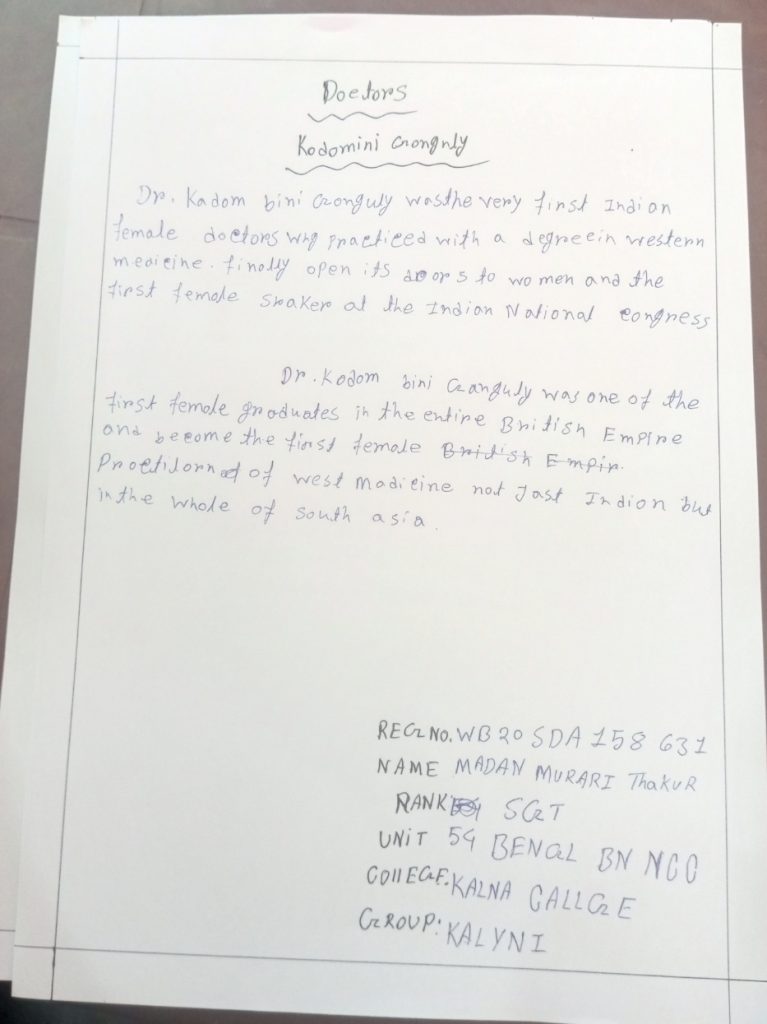 Doctors
Kadomini Gonguly
Dr. Kadom bini Gonguly wasthe very first Indian
female doctors who practiced with a degreein western
medicine. finally open its doors to women and the
first female spaker at the Indian National congress
Dr. Kadom bini Ganguly was one of the
first female graduates in the entire British Empire
and become the first female British Empir.
of west madicine not Jast Indion but
in the whole of south asia.
REG NO. WB20 SDA 158 631
NAME MADAN MURARI ThakuR
RANK SGT
UNiT 54 BENGL BN NCC
COllEGE. KALNA CALLGE
GROUP: KALYNI